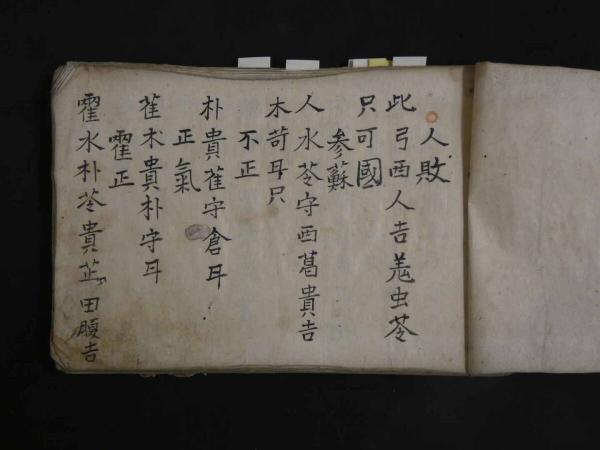 人敗
此弓西人吉羌虫苓
只可國
参蘇
人水苓守西葛貴吉
木苛耳只
不正
朴貴萑守倉耳
正氣
萑朮貴朴守耳
霍正
霍水朴苓貴芷田腹吉